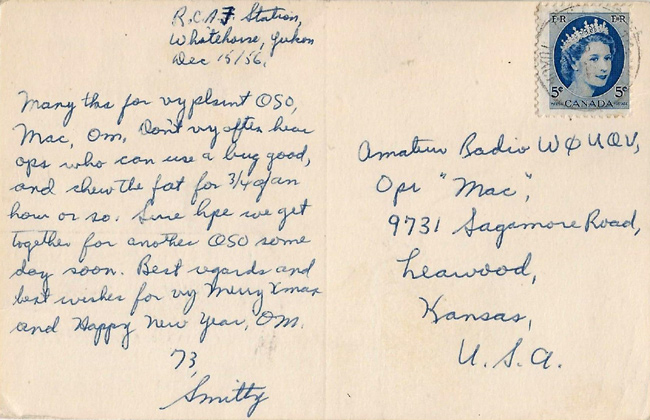 R.C.A.F Station,
Whitehorse, Yukon
Dec 15/56.
Many tks for vy plsnt QSO,
Mac, Om, Don't vy often hear
ops who can use a bug good,
and chew the fat for 3/4 of an
hour or so. Sure hpe we get
together for another QSO some
day soon. Best regards and
best wishes for vy Merry Xmas
and Happy New Year, OM.
73,
Smitty
E·R E·R
5¢ 5¢
CANADA
Amateur Radio WØUQV,
Opr "Mac",
9731 Sagamore Road,
Leawood,
Kansas,
U.S.A.